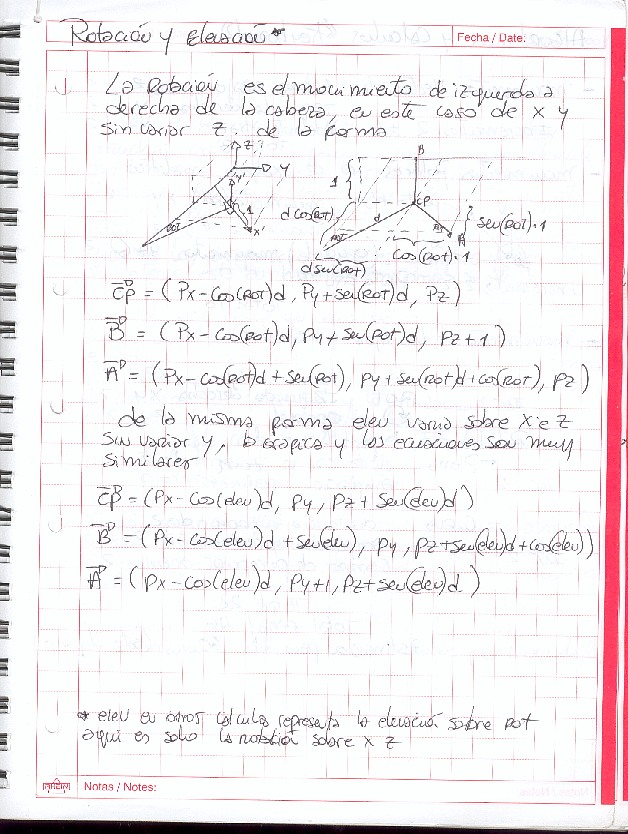 Rotación y elevación *
Fecha / Date:
La Rotación es el movimiento de izquierda a
derecha de la cabeza, en este caso de x y
sin variar z. de la forma
Z
Y
Y'
1
X'
ROT
B
1
CP
d cos(ROT)
d
ROT
ROT
A
sen(ROT)·1
cos(ROT)·1
d sen(ROT)
CP = (Px - cos(ROT)d, Py + sen(ROT)d, Pz)
B = (Px - cos(ROT)d, Py + sen(ROT)d, Pz + 1)
A = (Px - cos(ROT)d + sen(ROT), Py + sen(ROT)d + cos(ROT), Pz)
de la misma forma elev varia sobre X e Z
sin variar Y, la grafica y las ecuaciones son muy
similares
CP = (Px - cos(elev)d, Py, Pz + sen(elev)d)
B = (Px - cos(elev)d + sen(elev), Py, Pz + sen(elev)d + cos(elev))
A = (Px - cos(elev)d, Py + 1, Pz + sen(elev)d)
* elev en otros calculos representa la elevación sobre rot
aqui es solo la rotación sobre x z
Notas / Notes: